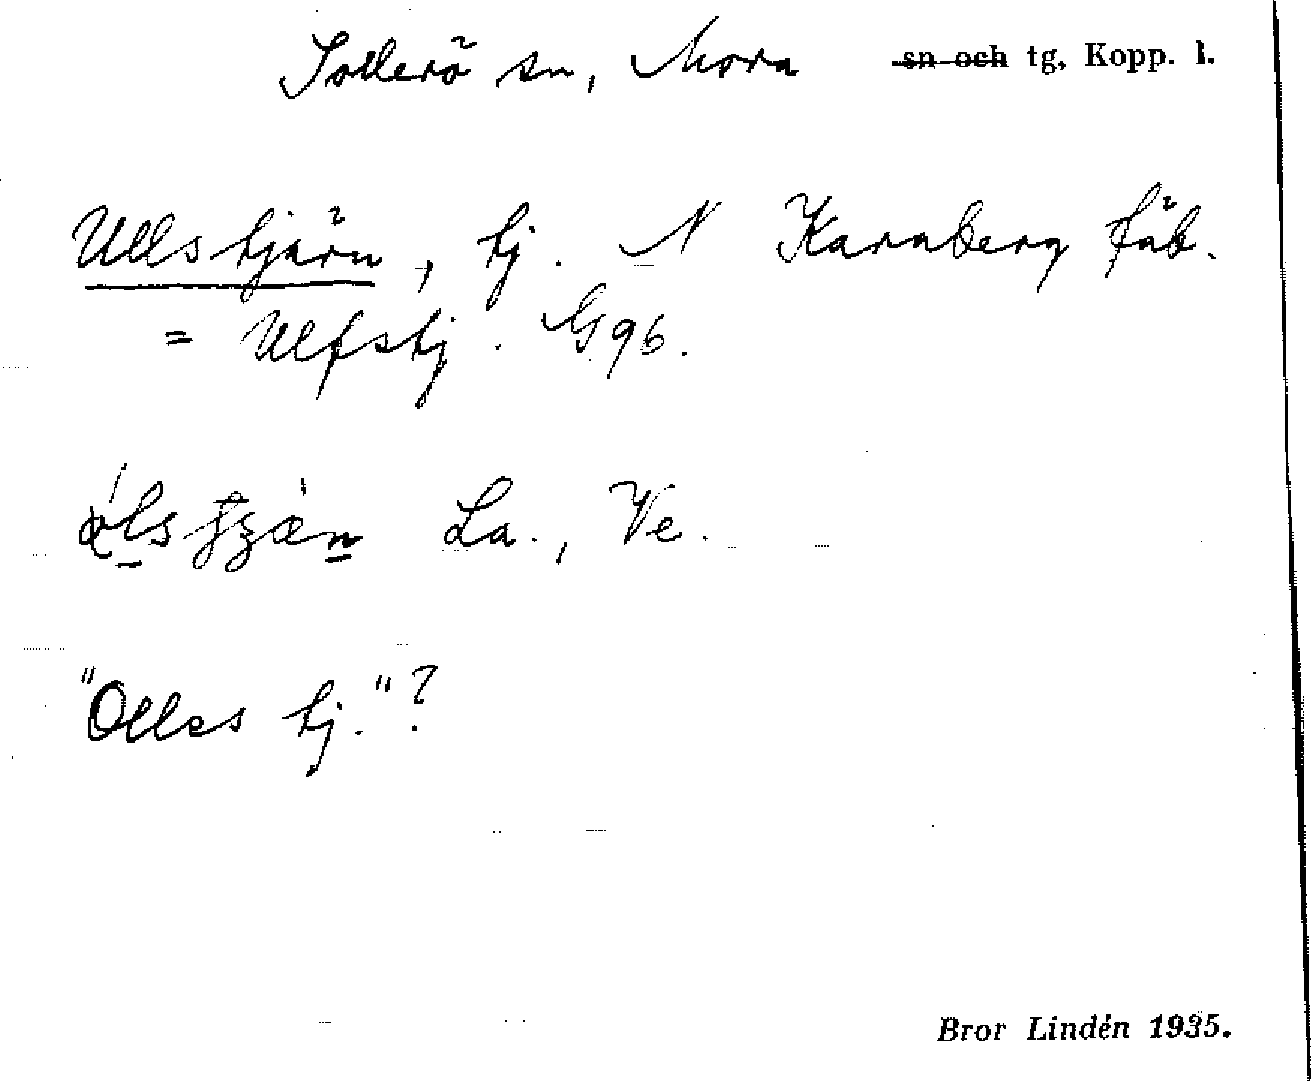 Sollerö sn, Mora sn och tg, Kopp. l.
Ullstjärn, tj. N Karnberg fäb.
= Ulfstj. G96.
La., Ve.
"Olles tj."?
Bror Lindén 1935.